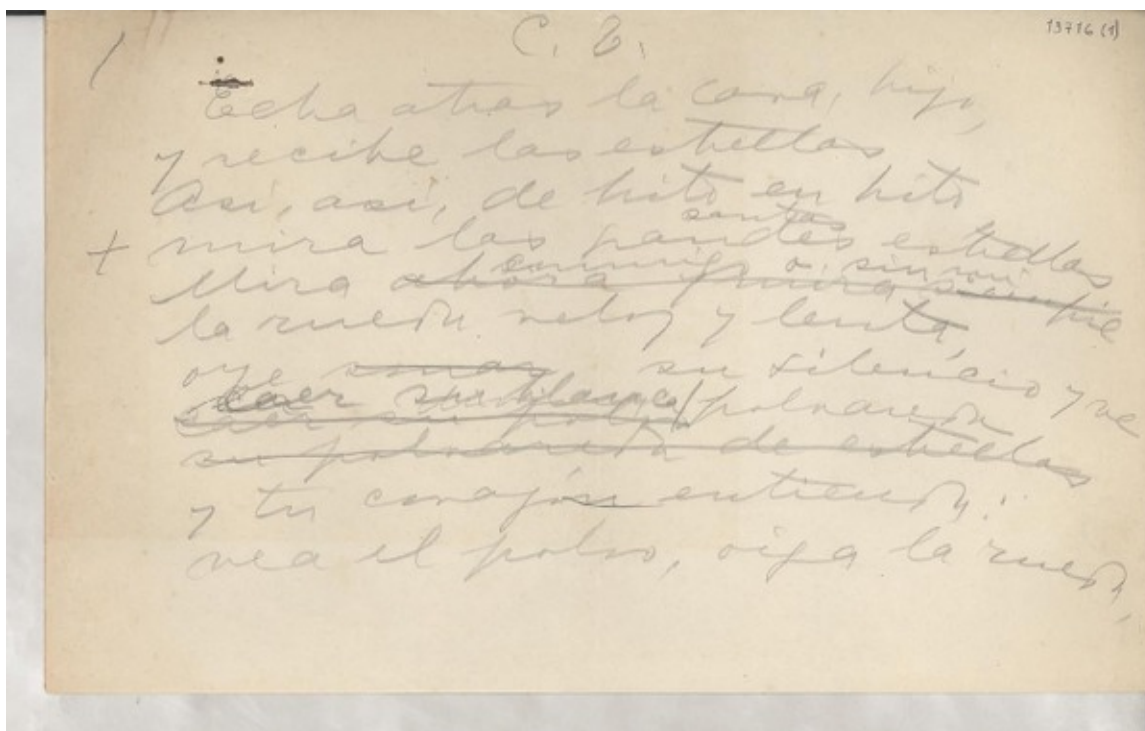 13716 (1)
1
C. E.
Echa atras la cara, hijo,
y recibe las estrellas
Asi, asi, de hito en hito
santas
+ mira las grandes estrellas
conmigo o sin mi
Mira ahora y mira siempre
la rueda veloz y lenta
oye sonar su silencio y ve
caer su blanca polvareda
caer su polvo
su polvareda de estrellas
y tu corazón entienda:
vea el polvo, oiga la rueda,